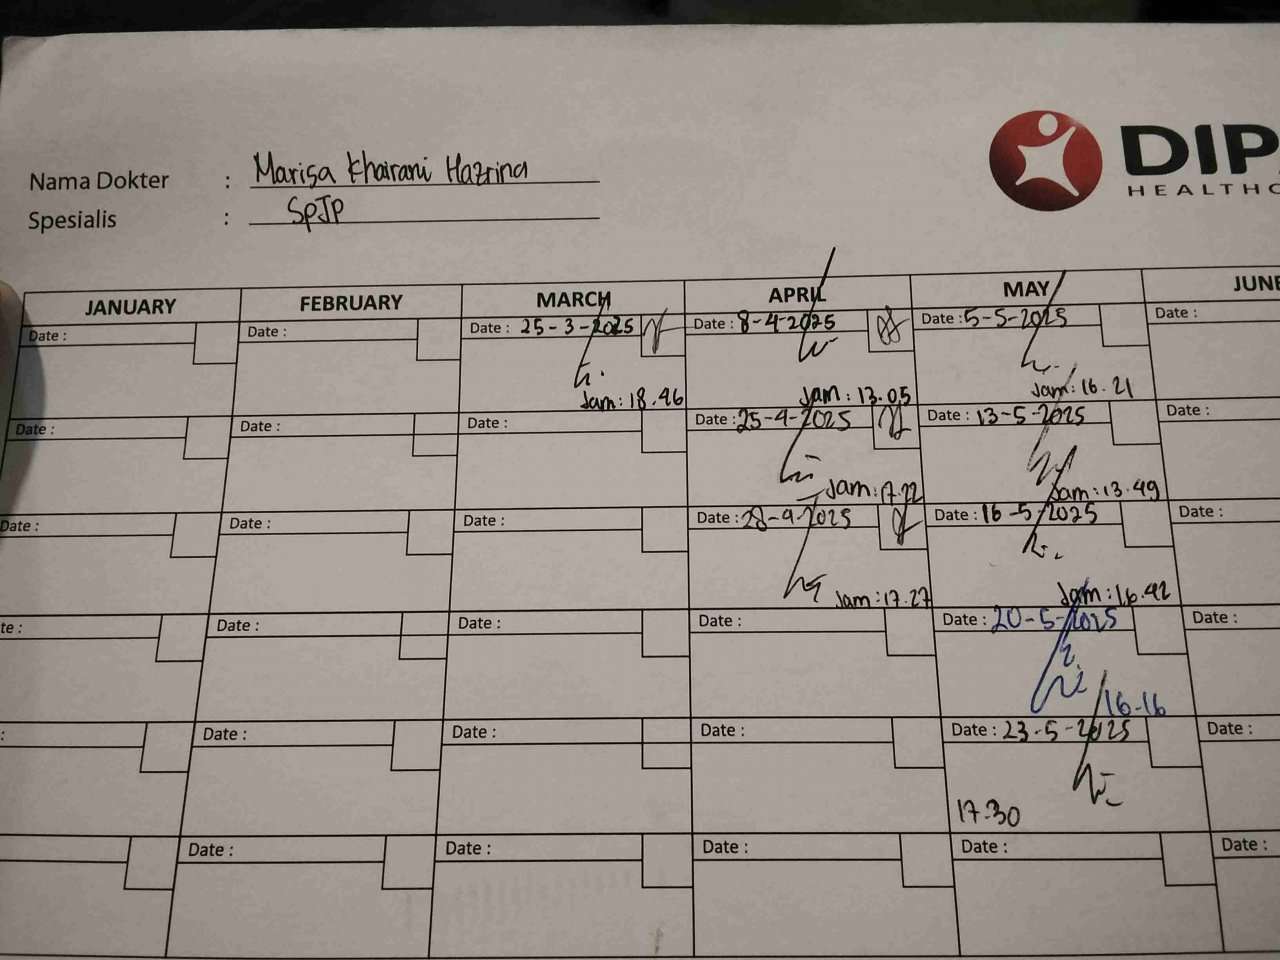 DIP
HEALTHC
Nama Dokter : Marisa Khairani Hazrina
Spesialis : SpJP
JANUARY FEBRUARY MARCH APRIL MAY JUNE
Date : Date : Date : 25-3-2025 Date : 8-4-2025 Date : 5-5-2025 Date :
Jam : 18.46 Jam : 13.05 Jam : 16.21
Date : Date : Date : Date : 25-4-2025 Date : 13-5-2025 Date :
Jam : 17.22 Jam : 13.49
Date : Date : Date : Date : 28-4-2025 Date : 16-5-2025 Date :
Jam : 17.27 Jam : 16.42
te : Date : Date : Date : Date : 20-5-2025 Date :
16-16
: Date : Date : Date : Date : 23-5-2025 Date :
17.30
Date : Date : Date : Date : Date :